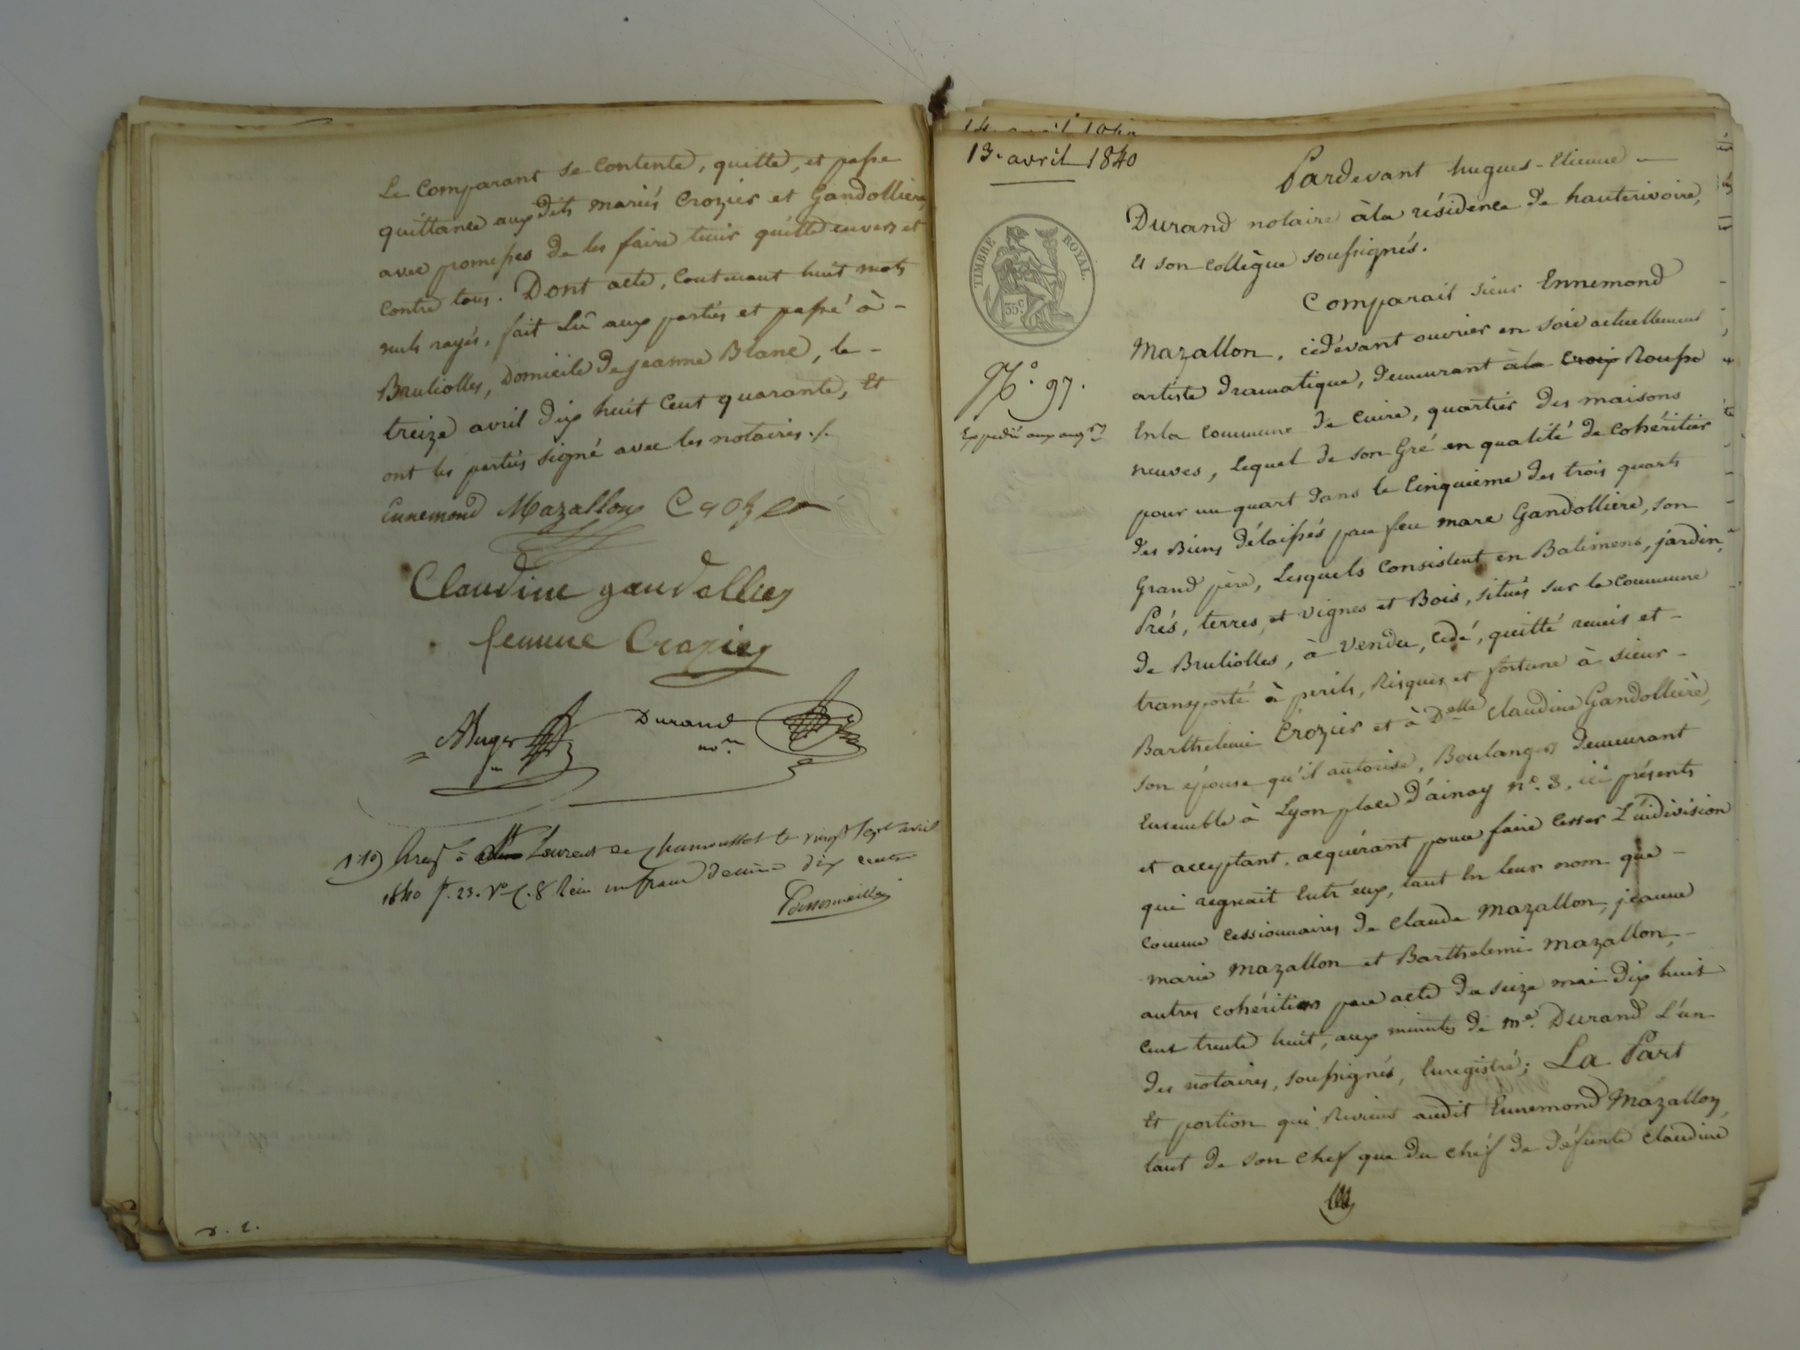 Le Comparant se contente, quitte, et passe
quittance aux dits mariés Crozier et Gandollière,
avec promesses de les faire tenir quitte envers et
contre tous. Dont acte, contenant huit mots
nuls rayés, fait Lû aux parties et passé à -
Brulliolles, Domicile de jeanne Blanc, le -
treize avril dix huit cent quarante, Et
ont les parties signé avec les notaires ./.
Ennemond Mazallon Crozier
Claudine gandollier
femme Crozier
Durand
nore
à St Laurent de chamousset le vingt sept avril
1840 fo. 23. Vo C. 8 Reçu un franc décime dix centimes
13. avril 1840
TIMBRE ROYAL.
35c
No. 97.
Expédié aux
Pardevant hugues-Etienne -
Durand notaire à la résidence de hauterivoire,
et son collègue soussignés.
Comparait sieur Ennemond
Mazallon, cidevant ouvrier en soie actuellement
artiste dramatique, demeurant à la Croix Rousse
En la Commune de Cuire, quartier des maisons
neuves, Lequel de son Gré en qualité de cohéritier
pour un quart dans le Cinquième des trois quarts
des Biens délaissés par feu marc Gandollière, son
Grand père, Lesquels consistent en Batimens, jardin,
Prés, terres, et vignes et Bois, situés sur la commune
de Brulliolles, à vendu, cédé, quitté remis et -
transporté à périls, Risques et fortune à sieur -
Barthelemi Crozier et à Delle Claudine Gandollière,
son épouse qu'il autorise, Boulangers demeurant
Ensemble à Lyon place d'ainay no. 3, ici présents
et acceptant. acquérant pour faire cesser L'indivision
qui regnait Entr'eux, tant En leur nom que -
comme cessionnaires de claude Mazallon, jeanne
marie Mazallon et Barthelemi Mazallon, -
autres cohéritiers par acte du seize mai dix huit
cent trente huit, aux minutes de me. Durand L'un
des notaires, soussignés, Enregistré; La Part
Et portion qui Revient audit Ennemond Mazallon,
tant de son chef que du chef de défunte Claudine